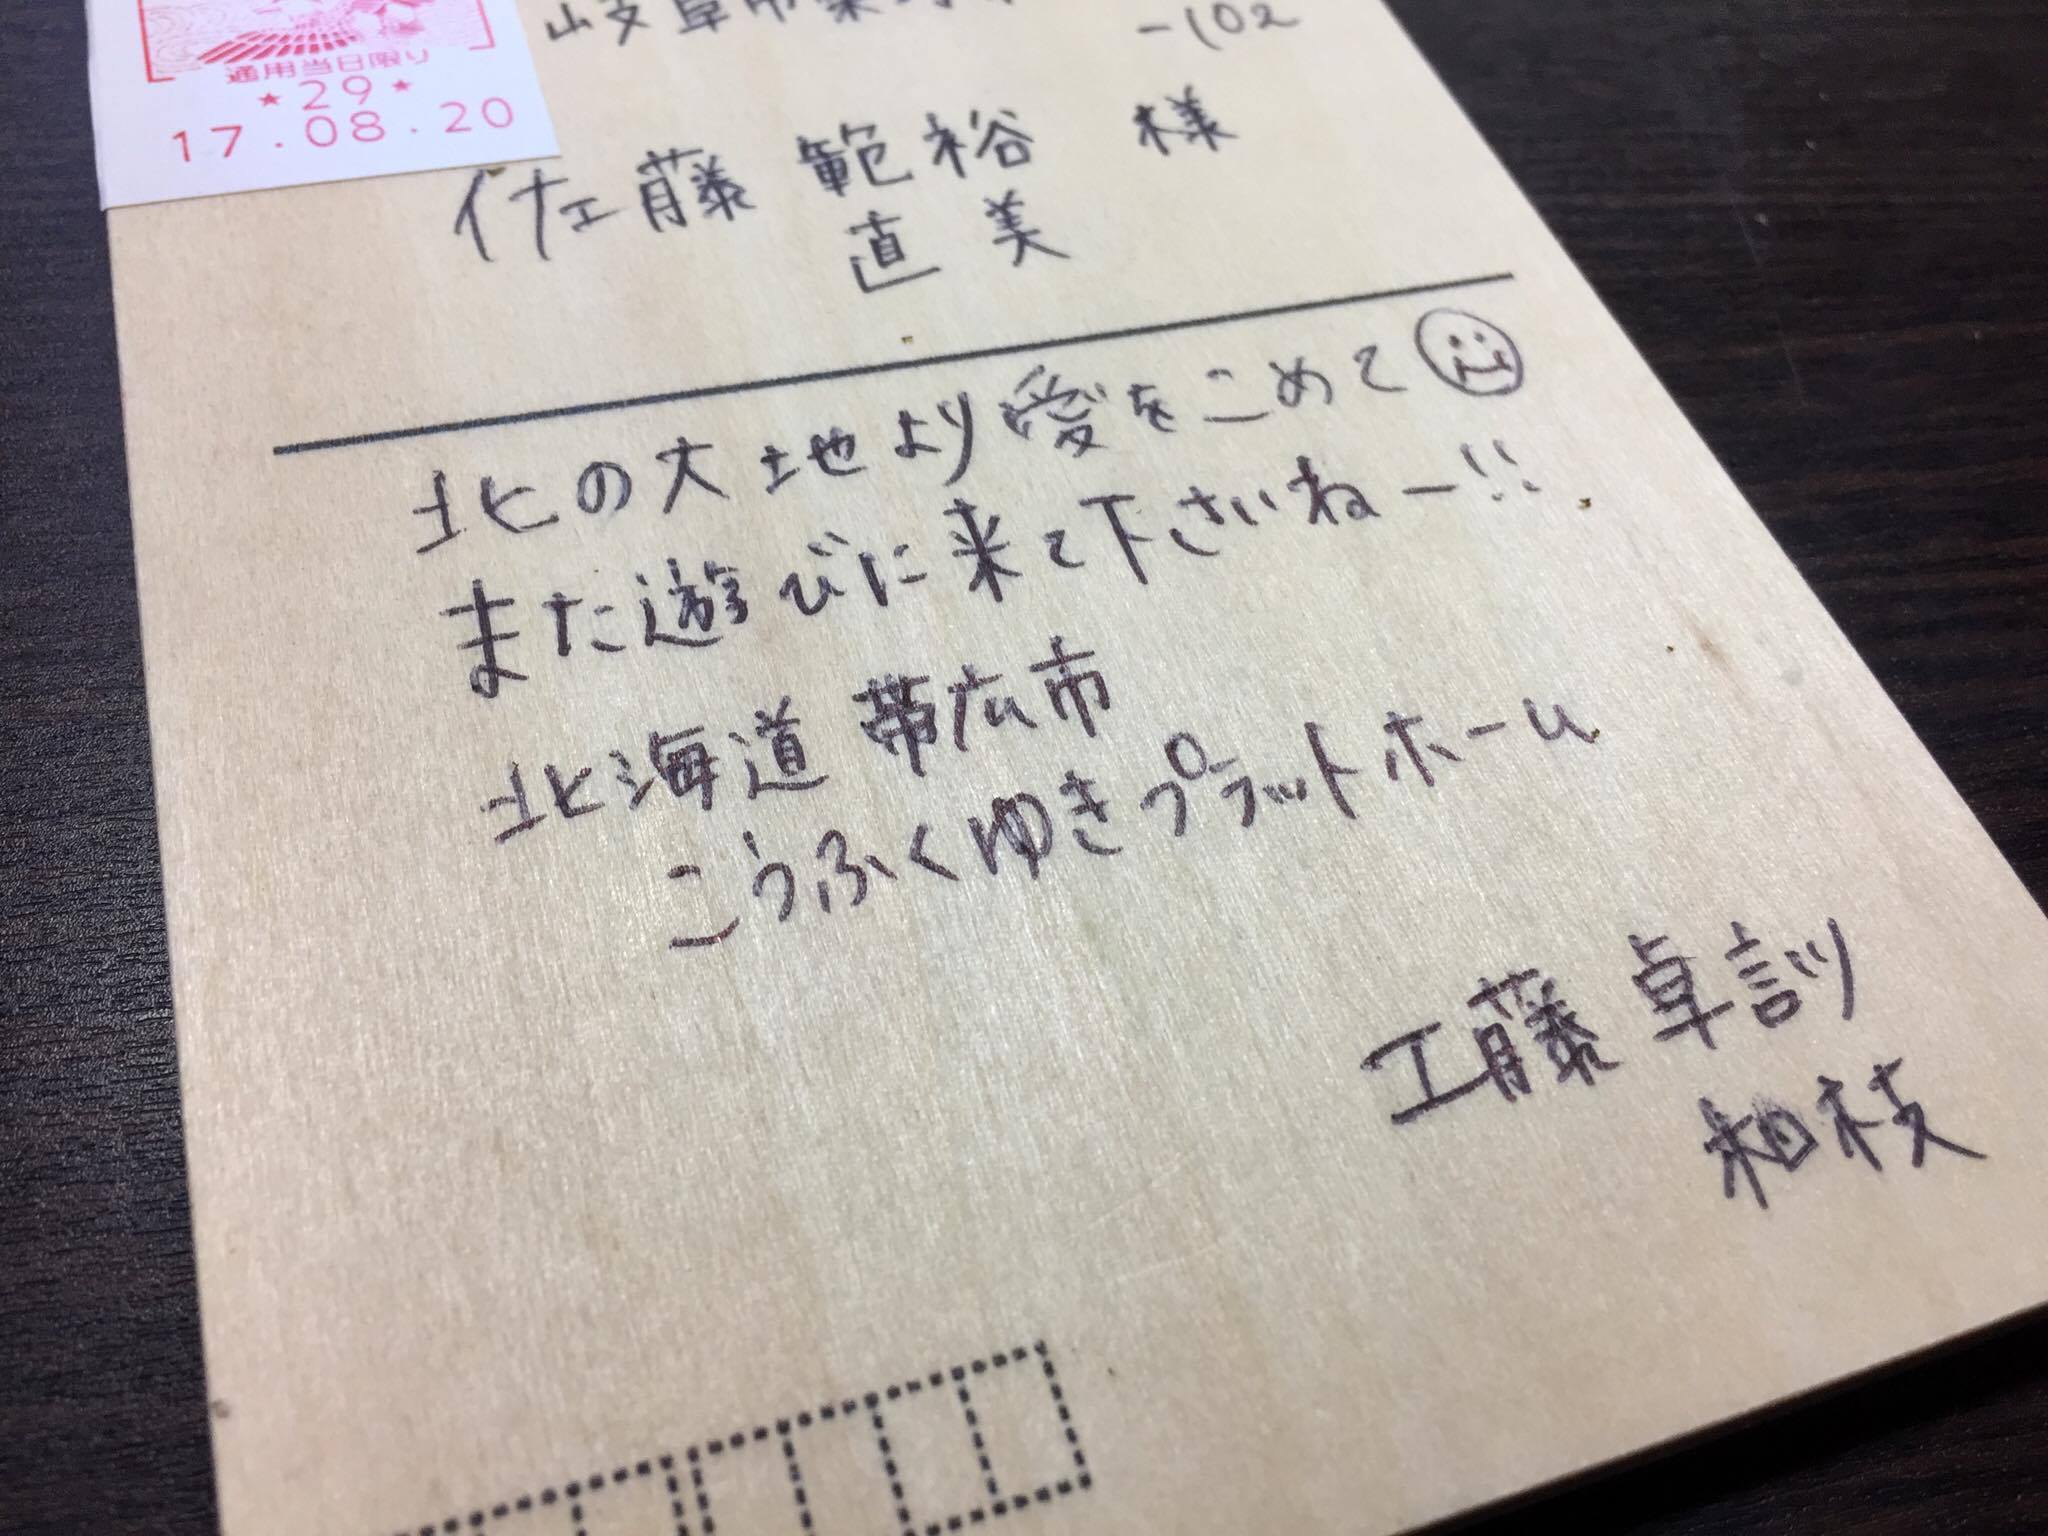 通用当日限り
★29★
17.08.20
岐阜市
-102
佐藤 範裕 様
直美
北の大地より愛をこめて
また遊びに来て下さいねー!!
北海道 帯広市
こうふくゆきプラットホーム
工藤 卓訓
和枝